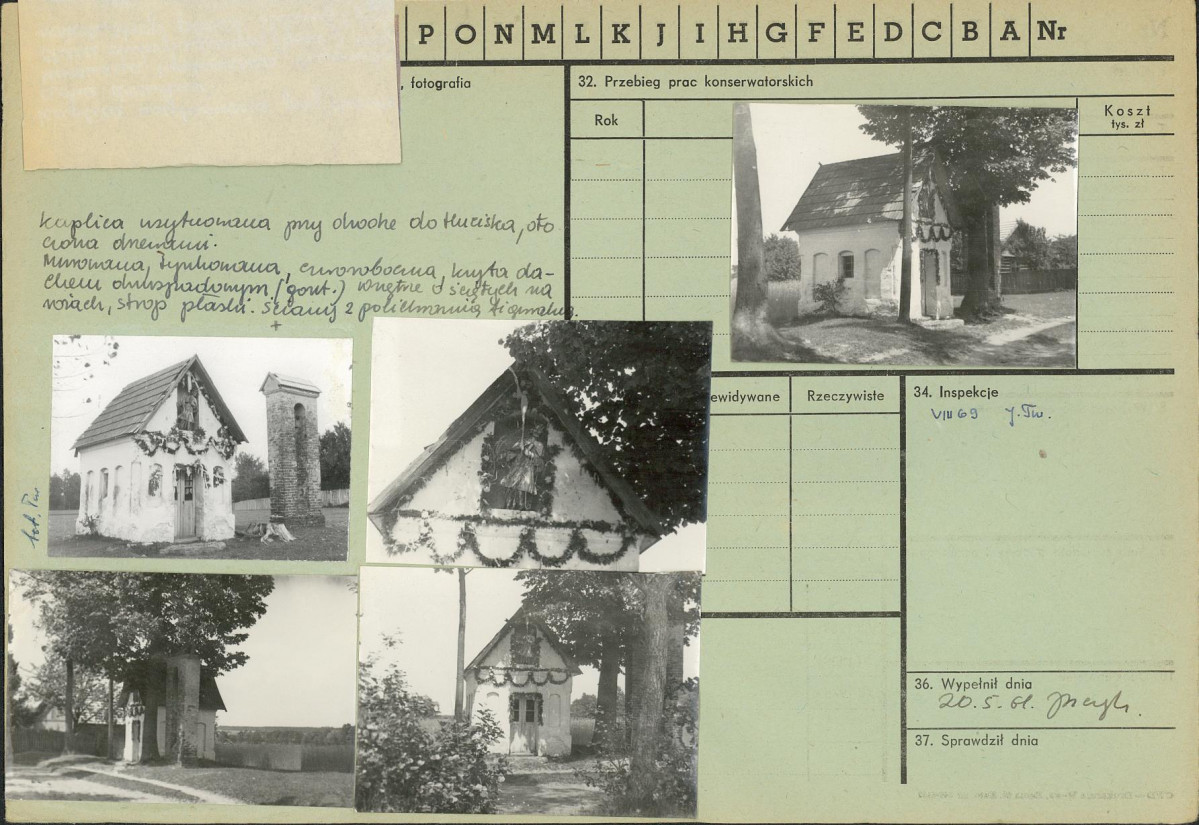 P O N M L K J I H G F E D C B A Nr
, fotografia
32. Przebieg prac konserwatorskich
Rok
Koszt
tys. zł
Kaplica usytuowana przy drodze do Huciska, oto
czona drzewami.
Murowana, tynkowana, czworoboczna, kryta da-
chem dwuspadowym (gont.) wnętrze o ściętych na
rożach, strop płaski. Ściany z polichromią
ewidywane
Rzeczywiste
34. Inspekcje
VIII 69 J. Tw.
fot. Tw
36. Wypełnił dnia
20.5.61.
37. Sprawdził dnia